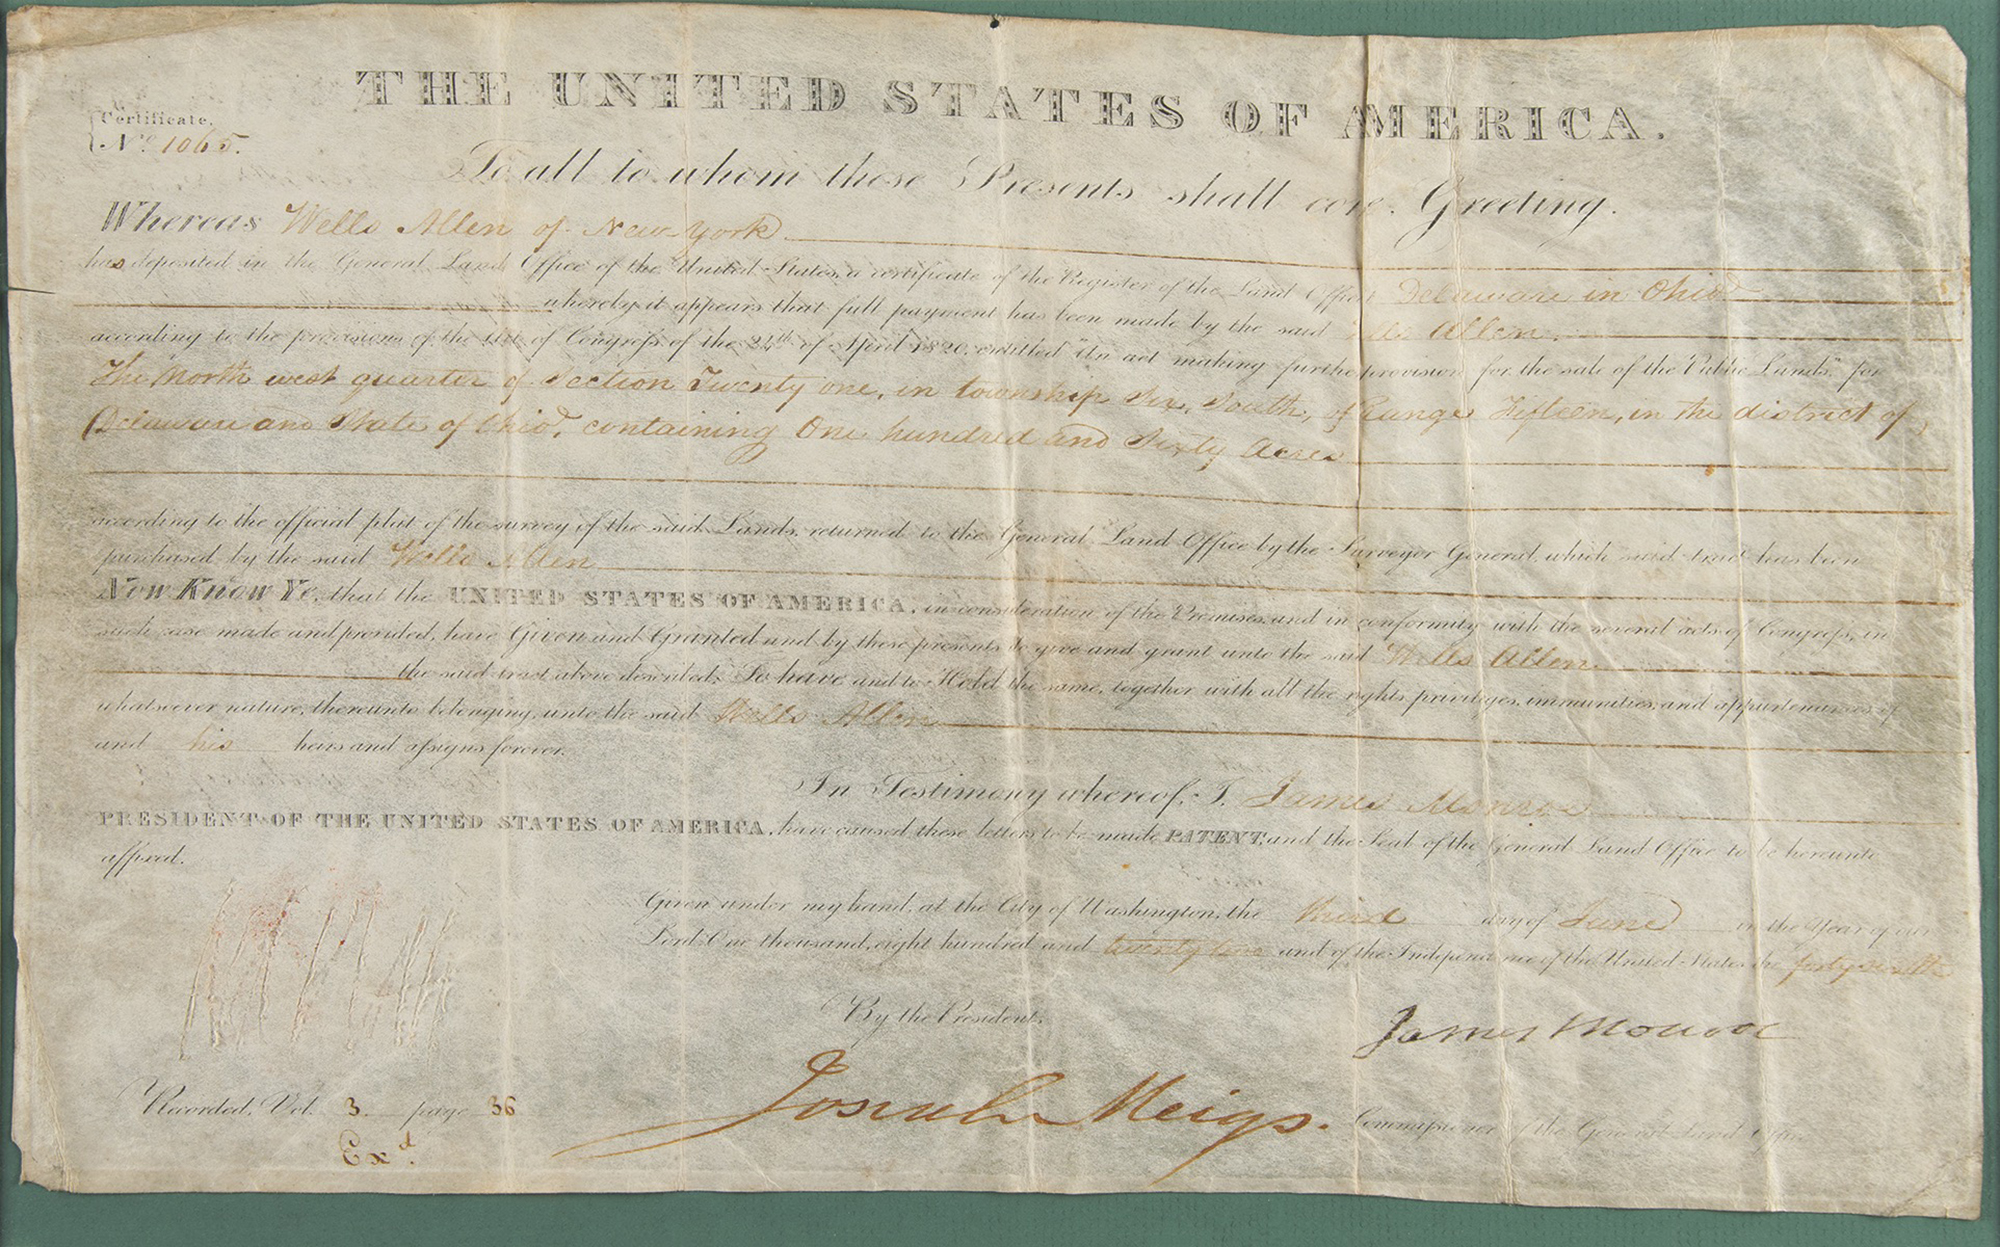 THE UNITED STATES OF AMERICA.
Certificate.
No. 1065.
To all to whom these Presents shall come. Greeting.
Whereas Wells Allen of New-York
has deposited in the General Land Office of the United States, a certificate of the Register of the Land Office at Delaware in Ohio
whereby it appears that full payment has been made by the said Wells Allen.
according to the provisions of the Act of Congress of the 24th of April 1820, entitled "An act making further provision for the sale of the Public Lands," for
The North west quarter of Section Twenty one, in township Six, South, of Range Fifteen, in the district of
Delaware and State of Ohio, containing One hundred and Sixty Acres
according to the official plat of the survey of the said Lands, returned to the General Land Office by the Surveyor General, which said tract has been
purchased by the said Wells Allen
Now Know Ye, that the UNITED STATES OF AMERICA, in consideration of the Premises, and in conformity with the several acts of Congress, in
such case made and provided, have Given and Granted and by these presents do give and grant unto the said Wells Allen
the said tract above described; To have and to Hold the same, together with all the rights, privileges, immunities, and appurtenances of
whatsoever nature, thereunto belonging, unto the said Wells Allen
and his heirs and assigns forever.
In Testimony whereof, I, James Monroe
PRESIDENT OF THE UNITED STATES OF AMERICA, have caused these letters to be made PATENT, and the Seal of the General Land Office to be hereunto
affixed.
Given under my hand, at the City of Washington, the third day of June in the Year of our
Lord One thousand, eight hundred and twenty two and of the Independence of the United States the forty sixth
By the President,
James Monroe
Josiah Meigs. Commissioner of the General Land Office
Recorded, Vol. 3. page 36
Exd.